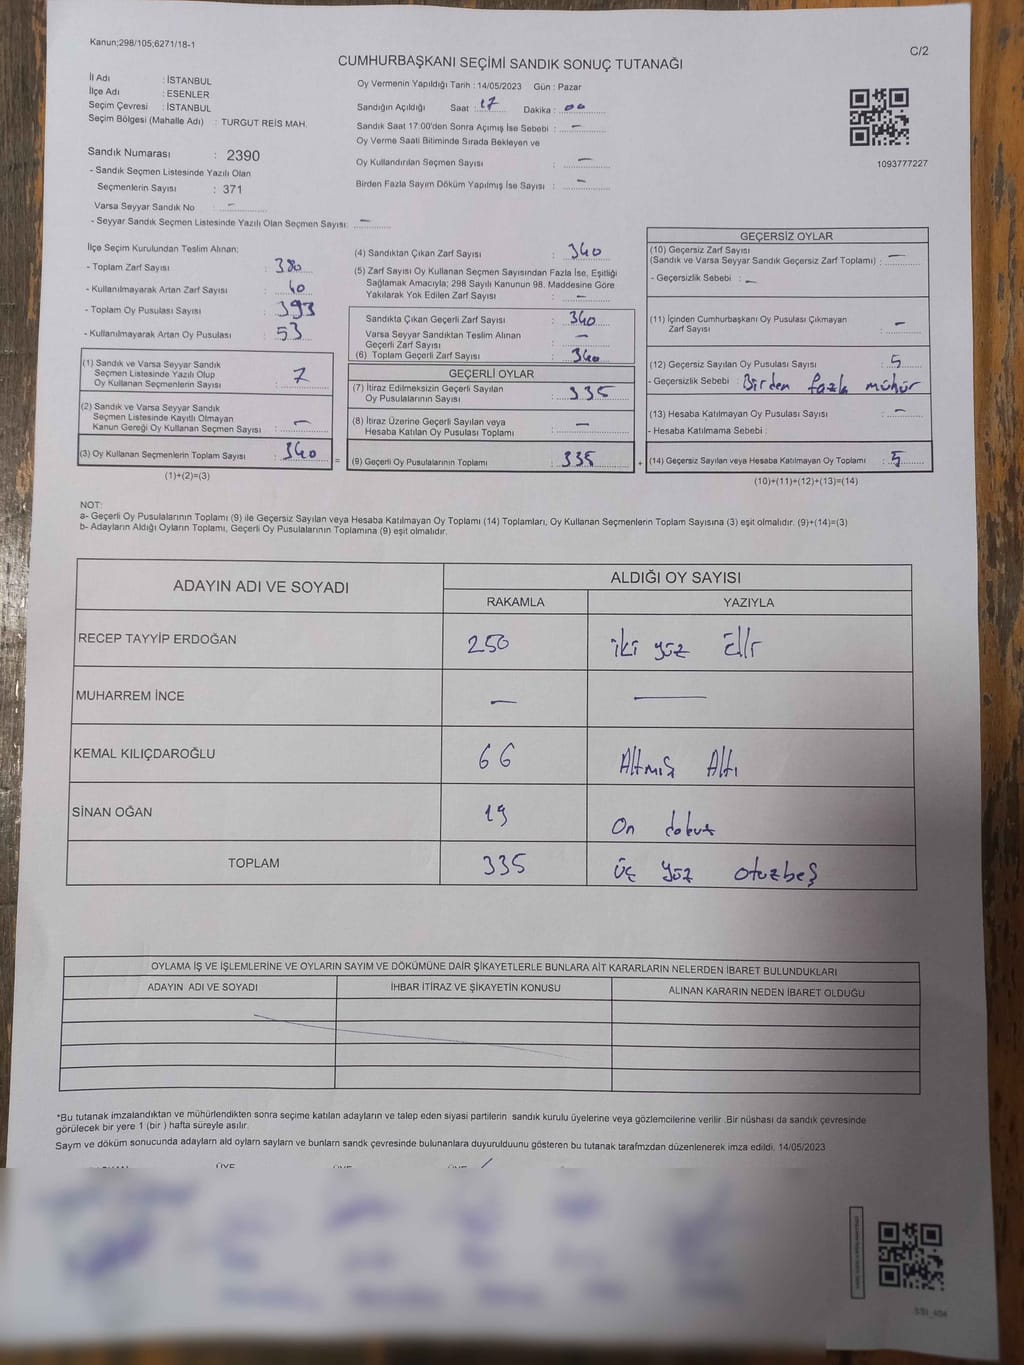 Kanun;298/105;6271/18-1
C/2
CUMHURBAŞKANI SEÇİMİ SANDIK SONUÇ TUTANAĞI
İl Adı : İSTANBUL
İlçe Adı : ESENLER
Seçim Çevresi : İSTANBUL
Seçim Bölgesi (Mahalle Adı) : TURGUT REİS MAH.
Sandık Numarası : 2390
- Sandık Seçmen Listesinde Yazılı Olan
Seçmenlerin Sayısı : 371
Varsa Seyyar Sandık No –
- Seyyar Sandık Seçmen Listesinde Yazılı Olan Seçmen Sayısı: –
Oy Vermenin Yapıldığı Tarih : 14/05/2023 Gün : Pazar
Sandığın Açıldığı Saat : 17 Dakika : 00
Sandık Saat 17:00'den Sonra Açımış İse Sebebi : –
Oy Verme Saati Bitiminde Sırada Bekleyen ve
Oy Kullandırılan Seçmen Sayısı : –
Birden Fazla Sayım Döküm Yapılmış İse Sayısı : –
1093777227
İlçe Seçim Kurulundan Teslim Alınan:
- Toplam Zarf Sayısı : 380
- Kullanılmayarak Artan Zarf Sayısı : 40
- Toplam Oy Pusulası Sayısı : 393
- Kullanılmayarak Artan Oy Pusulası : 53
(1) Sandık ve Varsa Seyyar Sandık
Seçmen Listesinde Yazılı Olup
Oy Kullanan Seçmenlerin Sayısı : 7
(2) Sandık ve Varsa Seyyar Sandık
Seçmen Listesinde Kayıtlı Olmayan
Kanun Gereği Oy Kullanan Seçmen Sayısı : –
(3) Oy Kullanan Seçmenlerin Toplam Sayısı : 340
(1)+(2)=(3)
(4) Sandıktan Çıkan Zarf Sayısı : 340
(5) Zarf Sayısı Oy Kullanan Seçmen Sayısından Fazla İse, Eşitliği
Sağlamak Amacıyla; 298 Sayılı Kanunun 98. Maddesine Göre
Yakılarak Yok Edilen Zarf Sayısı : –
Sandıkta Çıkan Geçerli Zarf Sayısı : 340
Varsa Seyyar Sandıktan Teslim Alınan
Geçerli Zarf Sayısı : –
(6) Toplam Geçerli Zarf Sayısı : 340
GEÇERLİ OYLAR
(7) İtiraz Edilmeksizin Geçerli Sayılan
Oy Pusulalarının Sayısı : 335
(8) İtiraz Üzerine Geçerli Sayılan veya
Hesaba Katılan Oy Pusulası Toplamı : –
= (9) Geçerli Oy Pusulalarının Toplamı : 335 +
GEÇERSİZ OYLAR
(10) Geçersiz Zarf Sayısı
(Sandık ve Varsa Seyyar Sandık Geçersiz Zarf Toplamı) : –
- Geçersizlik Sebebi : –
(11) İçinden Cumhurbaşkanı Oy Pusulası Çıkmayan
Zarf Sayısı : –
(12) Geçersiz Sayılan Oy Pusulası Sayısı : 5
- Geçersizlik Sebebi : Birden fazla mühür
(13) Hesaba Katılmayan Oy Pusulası Sayısı : –
- Hesaba Katılmama Sebebi :
(14) Geçersiz Sayılan veya Hesaba Katılmayan Oy Toplamı : 5
(10)+(11)+(12)+(13)=(14)
NOT:
a- Geçerli Oy Pusulalarının Toplamı (9) ile Geçersiz Sayılan veya Hesaba Katılmayan Oy Toplamı (14) Toplamları, Oy Kullanan Seçmenlerin Toplam Sayısına (3) eşit olmalıdır. (9)+(14)=(3)
b- Adayların Aldığı Oyların Toplamı, Geçerli Oy Pusulalarının Toplamına (9) eşit olmalıdır.
ADAYIN ADI VE SOYADI ALDIĞI OY SAYISI
RAKAMLA YAZIYLA
RECEP TAYYİP ERDOĞAN 250 iki yüz Elli
MUHARREM İNCE – –
KEMAL KILIÇDAROĞLU 66 Altmış Altı
SİNAN OĞAN 19 On dokuz
TOPLAM 335 üç yüz otuzbeş
OYLAMA İŞ VE İŞLEMLERİNE VE OYLARIN SAYIM VE DÖKÜMÜNE DAİR ŞİKAYETLERLE BUNLARA AİT KARARLARIN NELERDEN İBARET BULUNDUKLARI
ADAYIN ADI VE SOYADI İHBAR İTİRAZ VE ŞİKAYETİN KONUSU ALINAN KARARIN NEDEN İBARET OLDUĞU
*Bu tutanak imzalandıktan ve mühürlendikten sonra seçime katılan adayların ve talep eden siyasi partilerin sandık kurulu üyelerine veya gözlemcilerine verilir .Bir nüshası da sandık çevresinde
görülecek bir yere 1 (bir ) hafta süreyle asılır.
Saym ve döküm sonucunda adaylarn ald oylarn saylarn ve bunlarn sandk çevresinde bulunanlara duyurulduunu gösteren bu tutanak tarafmzdan düzenlenerek imza edildi. 14/05/2023
ÜYE